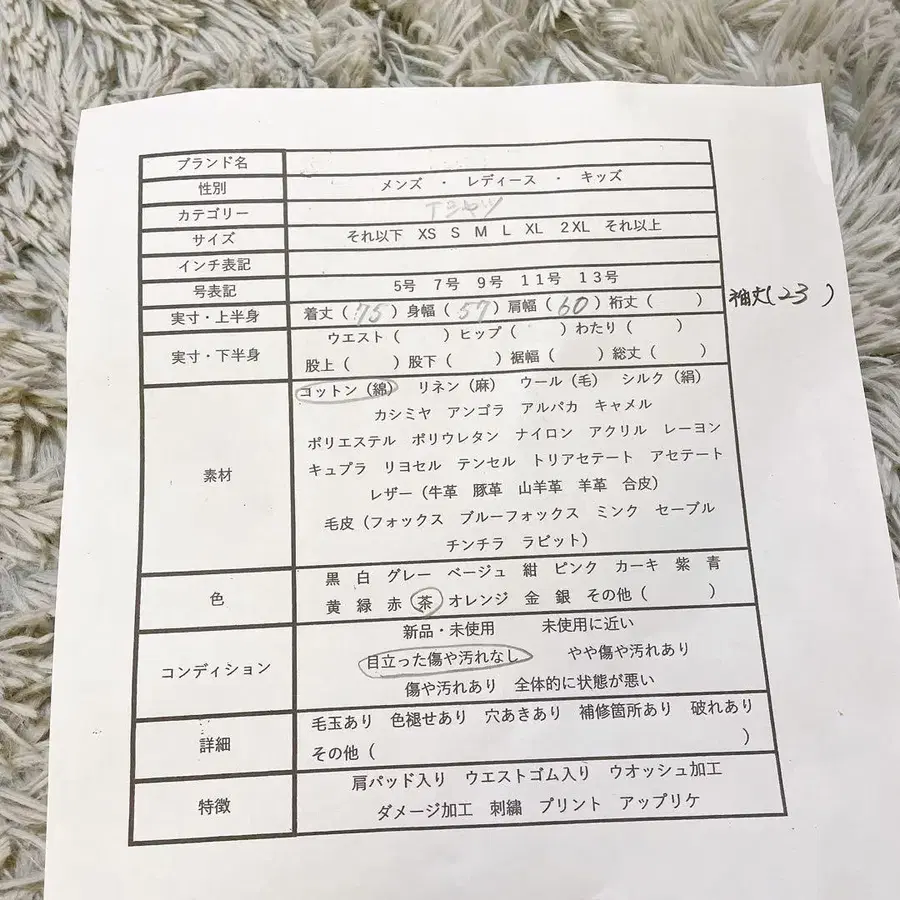 ブランド名
性別 メンズ ・ レディース ・ キッズ
カテゴリー Tシャツ
サイズ それ以下 XS S M L XL 2XL それ以上
インチ表記
号表記 5号 7号 9号 11号 13号
実寸・上半身 着丈（75）身幅（57）肩幅（60）裄丈（ ） 袖丈(23 )
実寸・下半身 ウエスト（ ）ヒップ（ ）わたり（ ）
股上（ ）股下（ ）裾幅（ ）総丈（ ）
素材 コットン（綿） リネン（麻） ウール（毛） シルク（絹）
カシミヤ アンゴラ アルパカ キャメル
ポリエステル ポリウレタン ナイロン アクリル レーヨン
キュプラ リヨセル テンセル トリアセテート アセテート
レザー（牛革 豚革 山羊革 羊革 合皮）
毛皮（フォックス ブルーフォックス ミンク セーブル
チンチラ ラビット）
色 黒 白 グレー ベージュ 紺 ピンク カーキ 紫 青
黄 緑 赤 茶 オレンジ 金 銀 その他（ ）
コンディション 新品・未使用 未使用に近い
目立った傷や汚れなし やや傷や汚れあり
傷や汚れあり 全体的に状態が悪い
詳細 毛玉あり 色褪せあり 穴あきあり 補修箇所あり 破れあり
その他（ ）
特徴 肩パッド入り ウエストゴム入り ウオッシュ加工
ダメージ加工 刺繍 プリント アップリケ